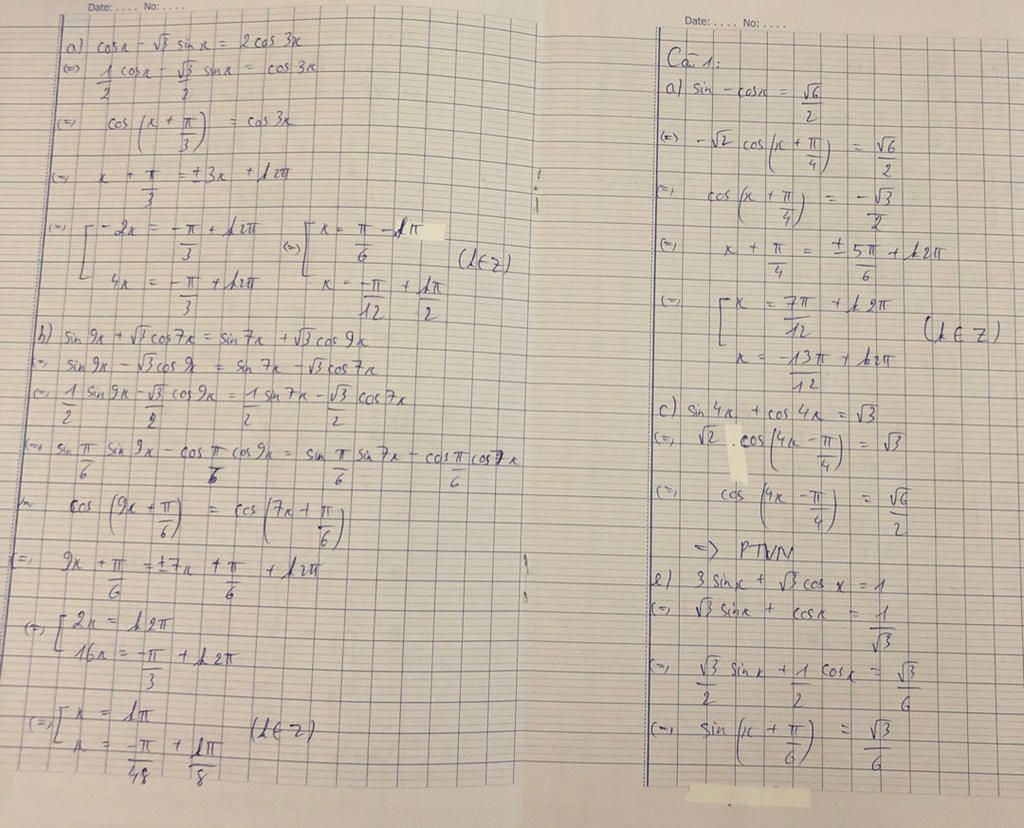 Date: .... No: ....
a) cosx - √3 sinx = 2 cos 3x
(=) 1/2 cosx - √3/2 sinx = cos 3x
(=) cos (x + π/3) = cos 3x
(=) x + π/3 = ±3x + k2π
(=) [ -2x = -π/3 + k2π (=) [ x = π/6 - kπ
4x = -π/3 + k2π x = -π/12 + kπ/2 (k∈Z)
b) sin 9x + √3 cos 7x = sin 7x + √3 cos 9x
(=) sin 9x - √3 cos 9x = sin 7x - √3 cos 7x
(=) 1/2 sin 9x - √3/2 cos 9x = 1/2 sin 7x - √3/2 cos 7x
(=) sin π/6 sin 9x - cos π/6 cos 9x = sin π/6 sin 7x - cos π/6 cos 7x
cos (9x + π/6) = cos (7x + π/6)
(=) 9x + π/6 = ±7x + π/6 + k2π
(=) [ 2x = k2π
16x = -π/3 + k2π
(=) [ x = kπ
x = -π/48 + kπ/8 (k∈Z)
Date: .... No: ....
Câu 1:
a) sin - cosx = √6/2
(=) -√2 cos (x + π/4) = √6/2
(=) cos (x + π/4) = -√3/2
(=) x + π/4 = ±5π/6 + k2π
(=) [ x = 7π/12 + k2π
x = -13π/12 + k2π (k∈Z)
c) sin 4x + cos 4x = √3
(=) √2 . cos (4x - π/4) = √3
(=) cos (4x - π/4) = √6/2
=> PTVN
e) 3 sinx + √3 cos x = 1
(=) √3 sinx + cosx = 1/√3
(=) √3/2 sinx + 1/2 cosx = √3/6
(=) sin (x + π/6) = √3/6